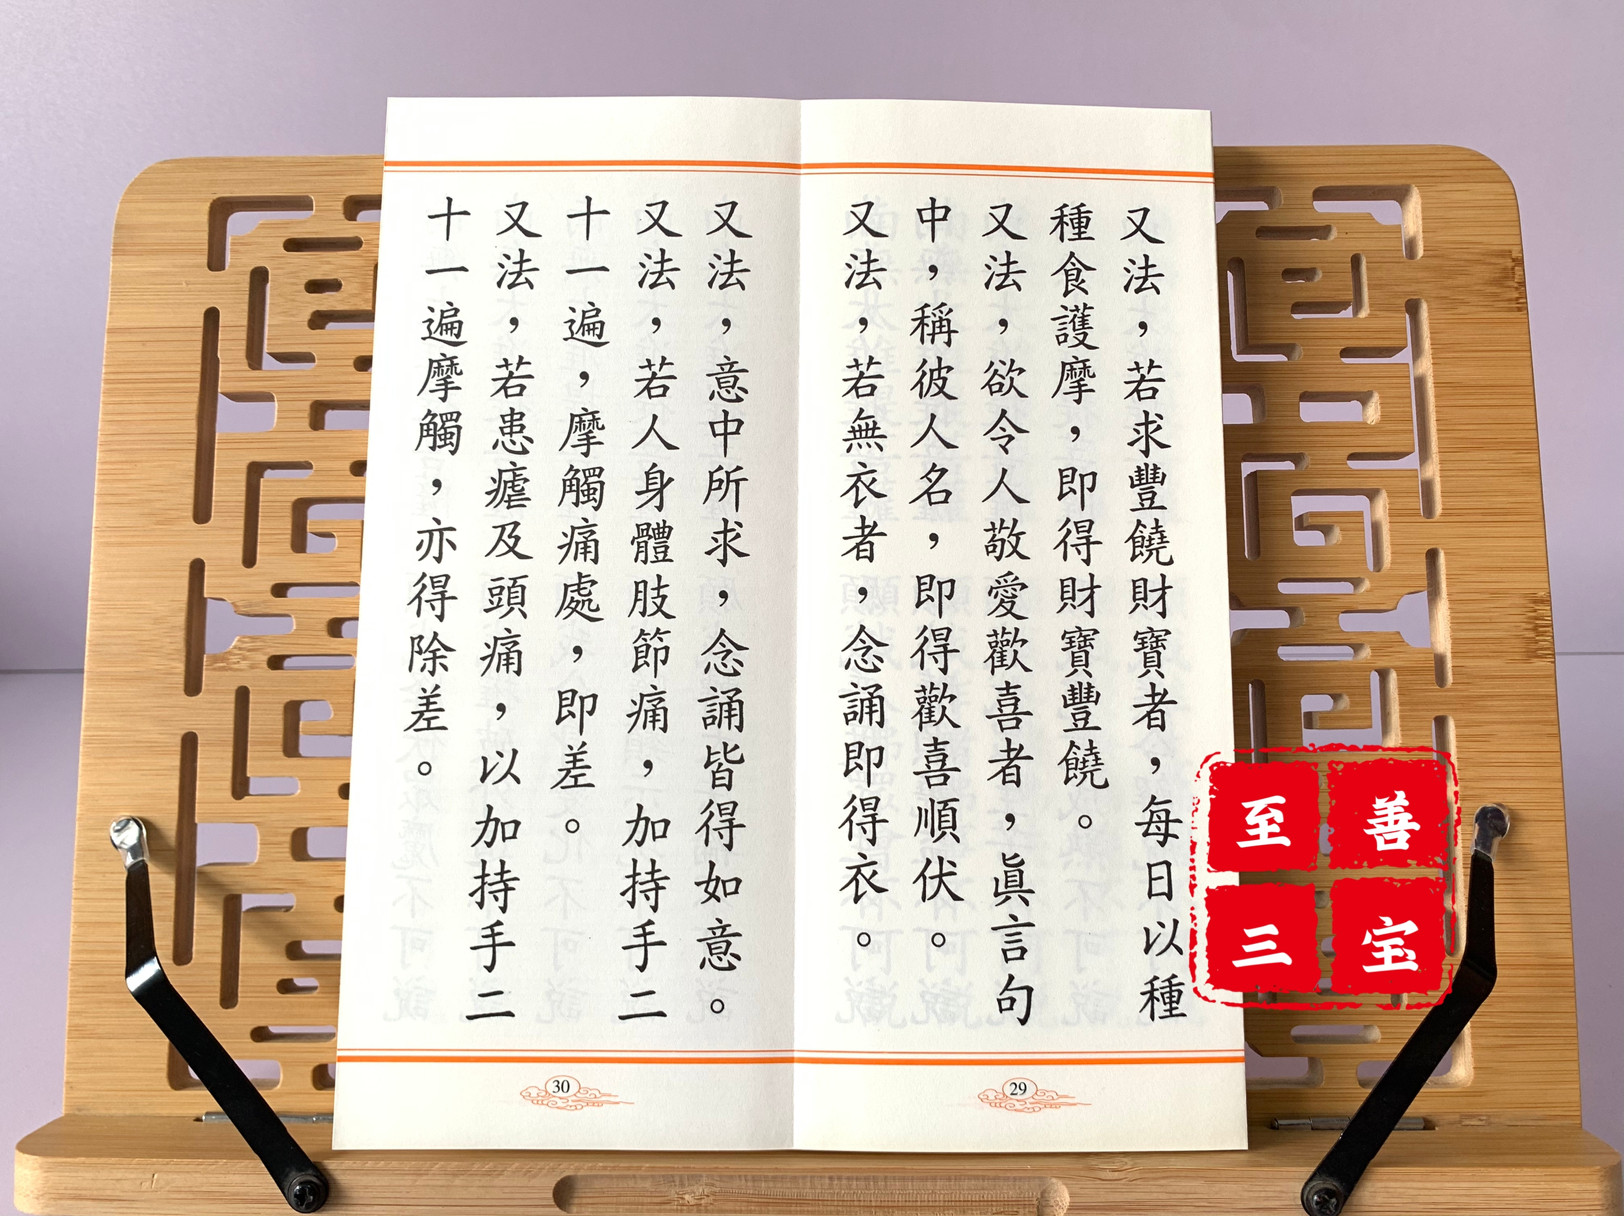 又法，若求豐饒財寶者，每日以種
種食護摩，即得財寶豐饒。
又法，欲令人敬愛歡喜者，真言句
中，稱彼人名，即得歡喜順伏。
又法，若無衣者，念誦即得衣。
29
又法，意中所求，念誦皆得如意。
又法，若人身體肢節痛，加持手二
十一遍，摩觸痛處，即差。
又法，若患瘧及頭痛，以加持手二
十一遍摩觸，亦得除差。
30
至善
三宝